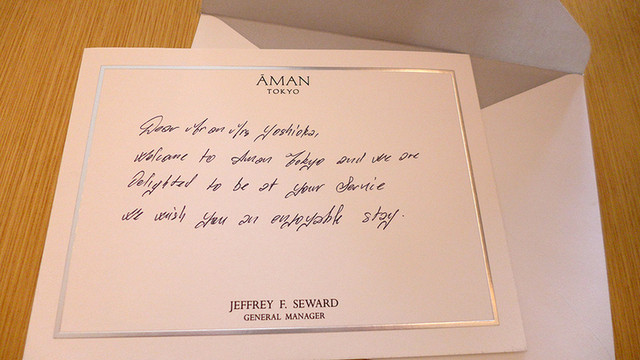 ĀMAN
TOKYO
Dear Mr an Mrs Yoshioka,
Welcome to Aman Tokyo and we are
Delighted to be at your Service
We wish you an enjoyable stay.
JEFFREY F. SEWARD
GENERAL MANAGER